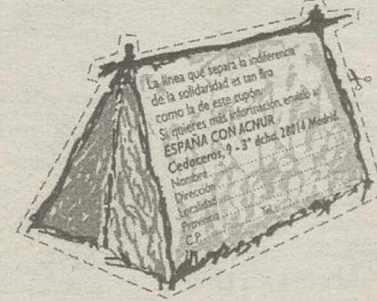 La línea que separa la indiferencia
de la solidaridad es tan fina
como la de este cupón.
Si quieres más información, envíelo a:
ESPAÑA CON ACNUR
Cedaceros, 9 - 3° dcha. 28014 Madrid.
Nombre
Dirección
Localidad
Provincia Tel.
C.P.